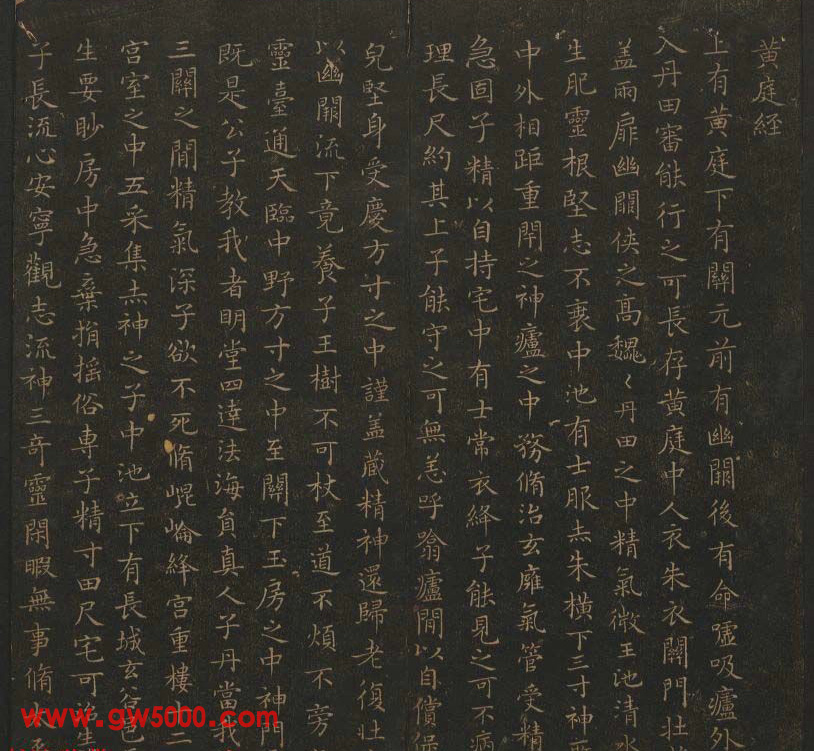 黄庭経
上有黄庭下有關元前有幽闕後有命噓吸廬外
入丹田審能行之可長存黄庭中人衣朱衣關門壮
盖兩扉幽闕侠之髙魏〻丹田之中精氣微玉池清水
生肥靈根堅志不衰中池有士服赤朱橫下三寸神
中外相距重閇之神廬之中務脩治玄癰氣管受精
急固子精以自持宅中有士常衣絳子能見之可不病
理長尺約其上子能守之可無恙呼翕廬間以自償
兒堅身受慶方寸之中謹盖蔵精神還歸老復壮
以幽闕流下竟養子玉樹不可杖至道不煩不旁
靈臺通天臨中野方寸之中至關下玉房之中神門
既是公子教我者明堂四達法海負真人子丹當我
三關之間精氣深子欲不死脩崐崘絳宫重樓
宫室之中五采集赤神之子中池立下有長城玄谷邑
生要眇房中急棄捐搖俗専子精寸田尺宅可治生
子長流心安寧觀志流神三奇靈閑暇無事脩
www.gw5000.com